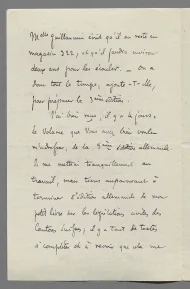 Melle Guillaumin écrit qu'il en reste en
magasin 322, et qu'il faudra environ
deux ans pour les écouler. — on a
donc tout le temps, ajoute-t-elle,
pour préparer la 3ème édition.
J'ai donc reçu, il y a 4 jours,
le volume que vous avez bien voulu
m'adresser, de la 5ème édition allemande.
Je me mettrai tranquillement au
travail, mais tiens auparavant à
terminer l'édition allemande de mon
petit livre sur les législations civiles des
Cantons suisses; il y a tant de textes
à compléter et à revoir que cela me